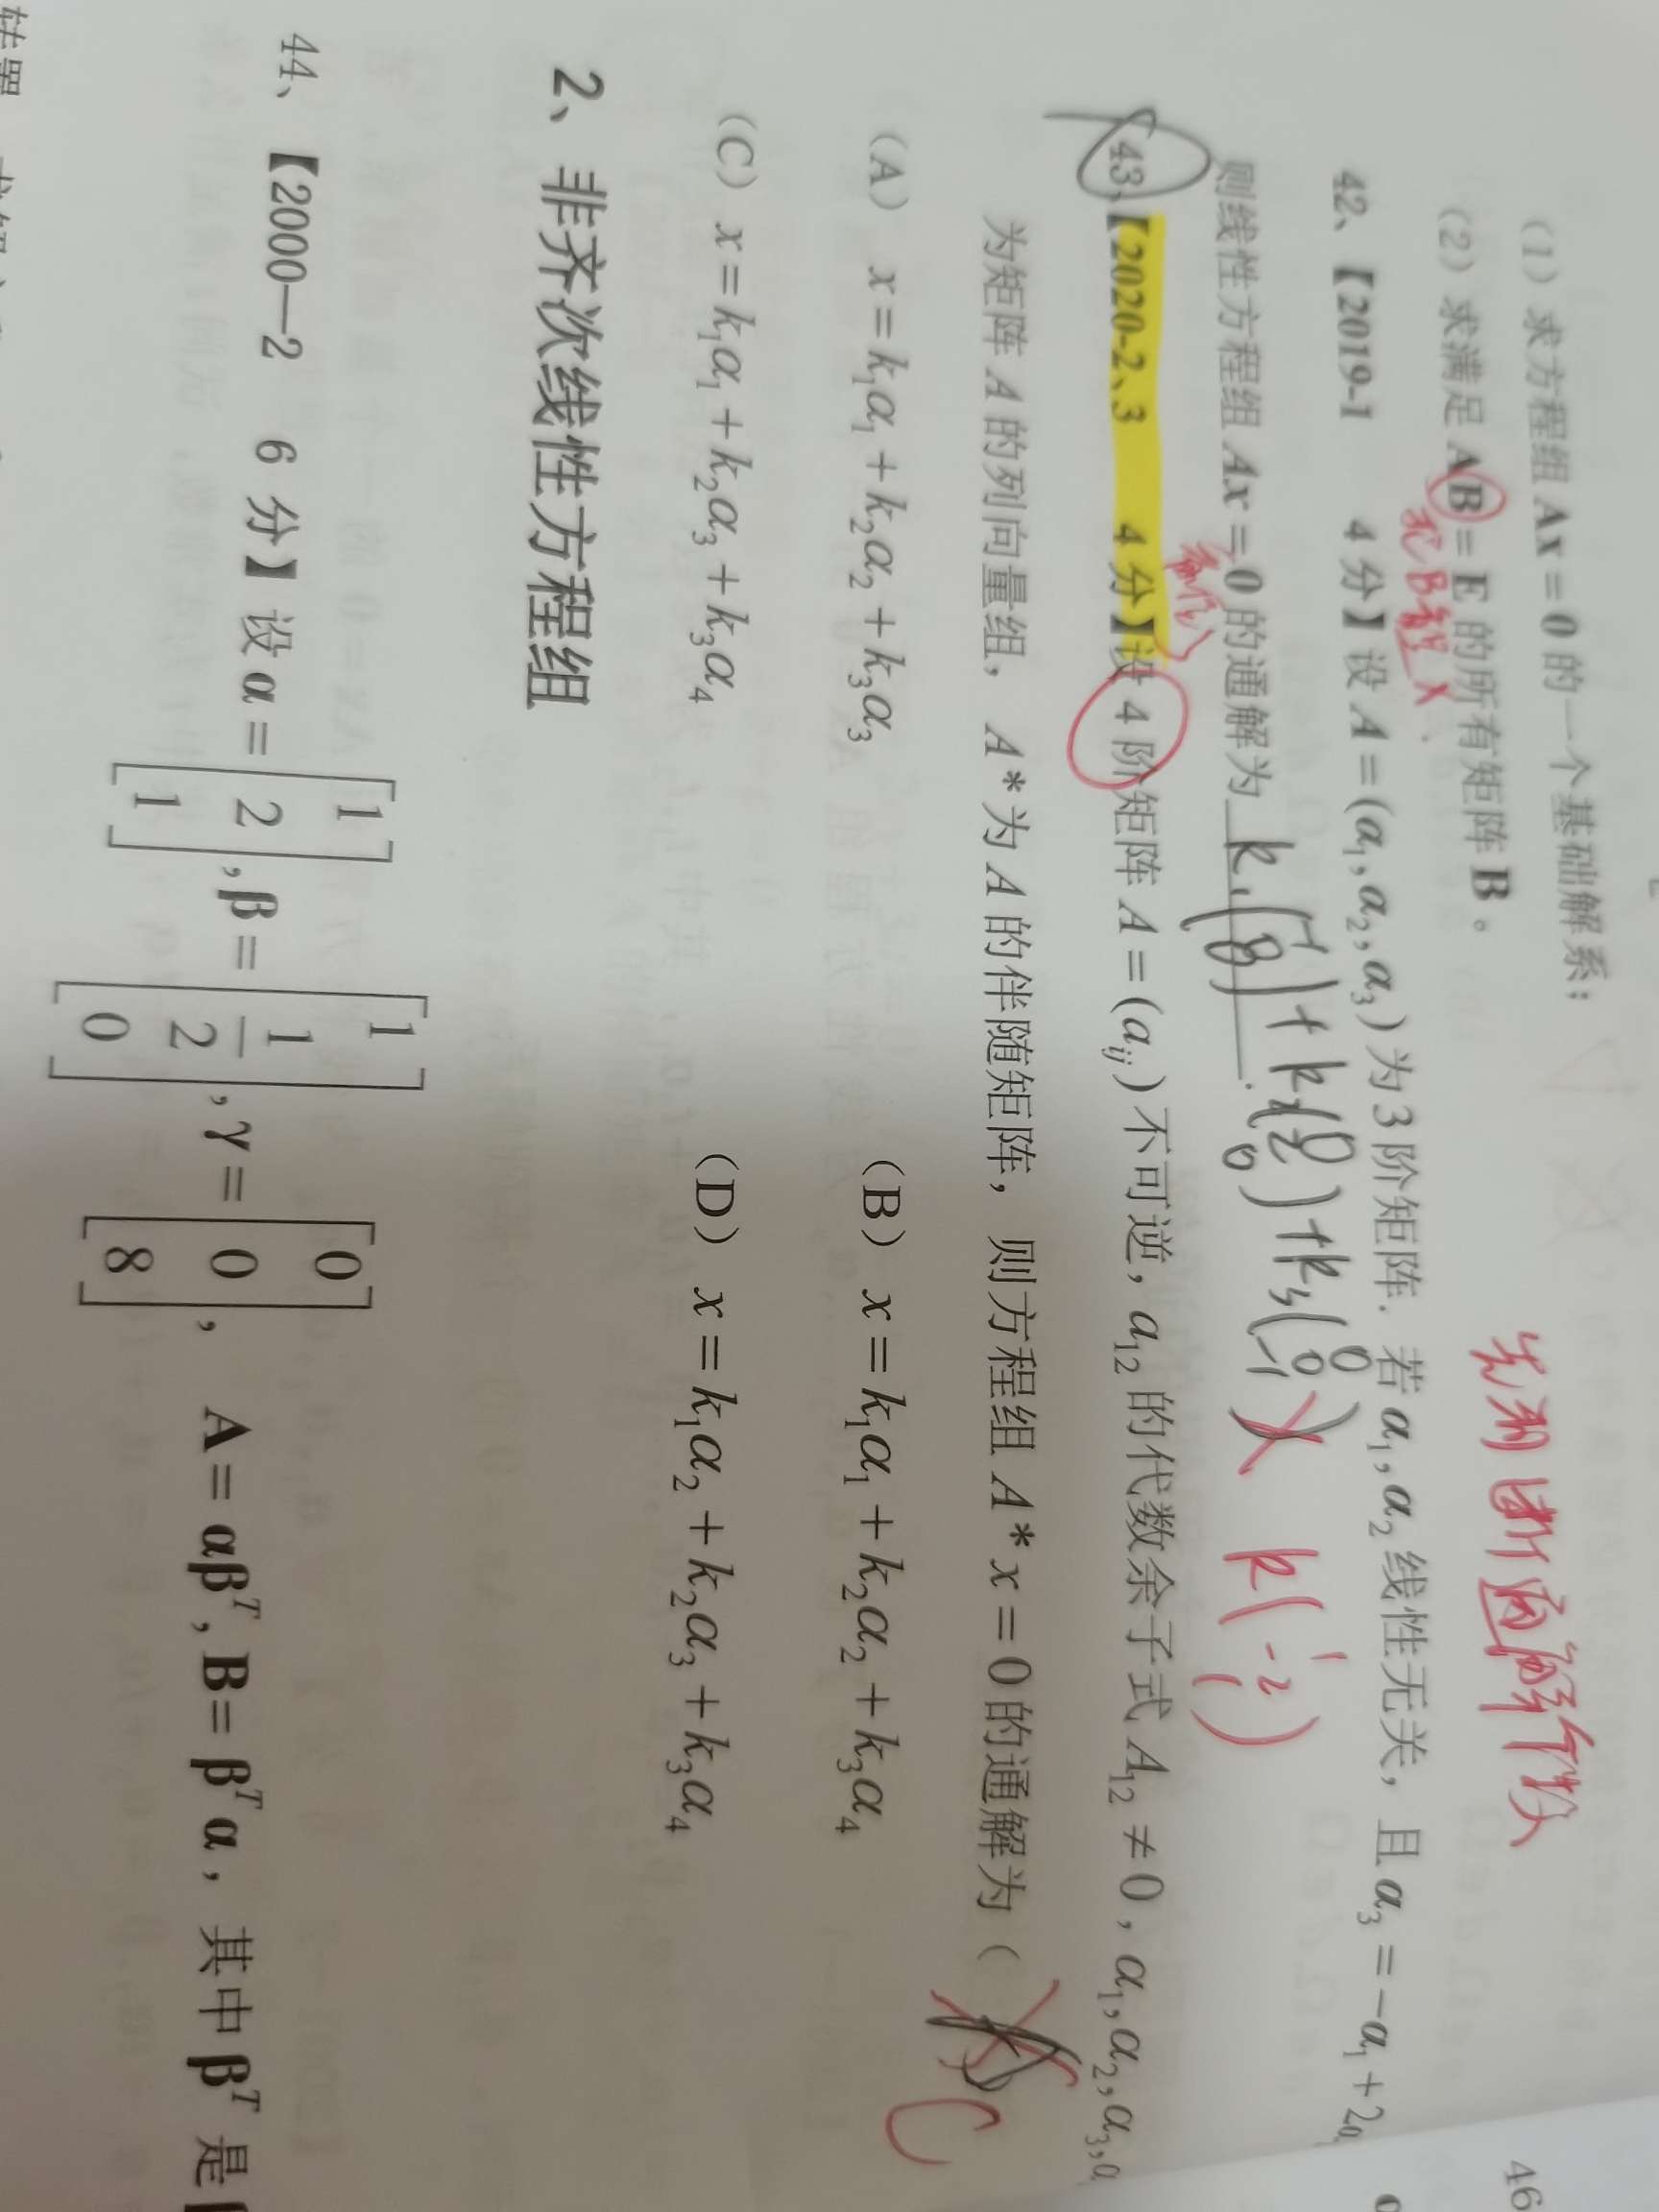 (1) 求方程组 Ax = 0 的一个基础解系;
(2) 求满足 AB = E 的所有矩阵 B。
求B就是X
先利用通解个数
42、【2019-1 4 分】设 A = (α₁, α₂, α₃) 为 3 阶矩阵. 若 α₁, α₂ 线性无关, 且 α₃ = −α₁ + 2α
则线性方程组 Ax = 0 的通解为 k₁
k(1 -2 1)
43、【2020-2、3 4 分】设 4 阶矩阵 A = (aᵢⱼ) 不可逆, a₁₂ 的代数余子式 A₁₂ ≠ 0, α₁, α₂, α₃, α
为矩阵 A 的列向量组, A* 为 A 的伴随矩阵, 则方程组 A* x = 0 的通解为 (
C
(A) x = k₁α₁ + k₂α₂ + k₃α₃ (B) x = k₁α₁ + k₂α₂ + k₃α₄
(C) x = k₁α₁ + k₂α₃ + k₃α₄ (D) x = k₁α₂ + k₂α₃ + k₃α₄
2、非齐次线性方程组
44、【2000—2 6 分】设 α = [1 2 1], β = [1 1/2 0], γ = [0 0 8], A = αβᵀ, B = βᵀα, 其中 βᵀ 是
转置
46